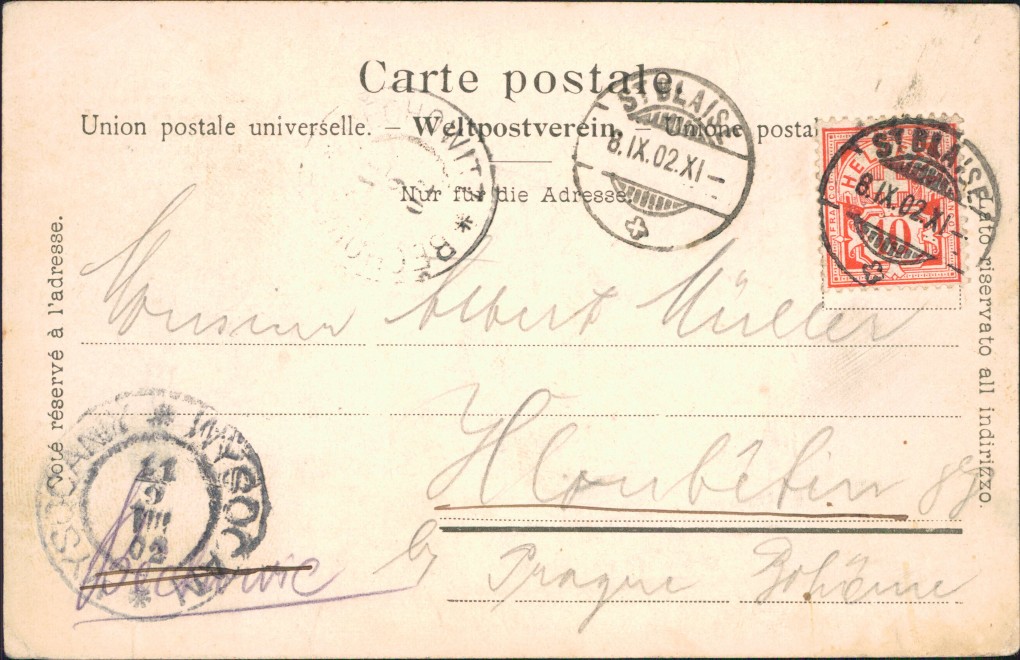 Carte postale.
Union postale universelle. – Weltpostverein. – Unione posta
Nur für die Adresse.
Côté réservé à l'adresse.
Lato riservato all indirizzo.
ST BLAISE
8.IX.02.XI–
HEL
FRANCO
10
ST BLAISE
8.IX.02.XI–
Monsieur Albert Müller
Hloubětin
by Prague Bohême
WYSOČAN
VYSOČANY
VIII
02